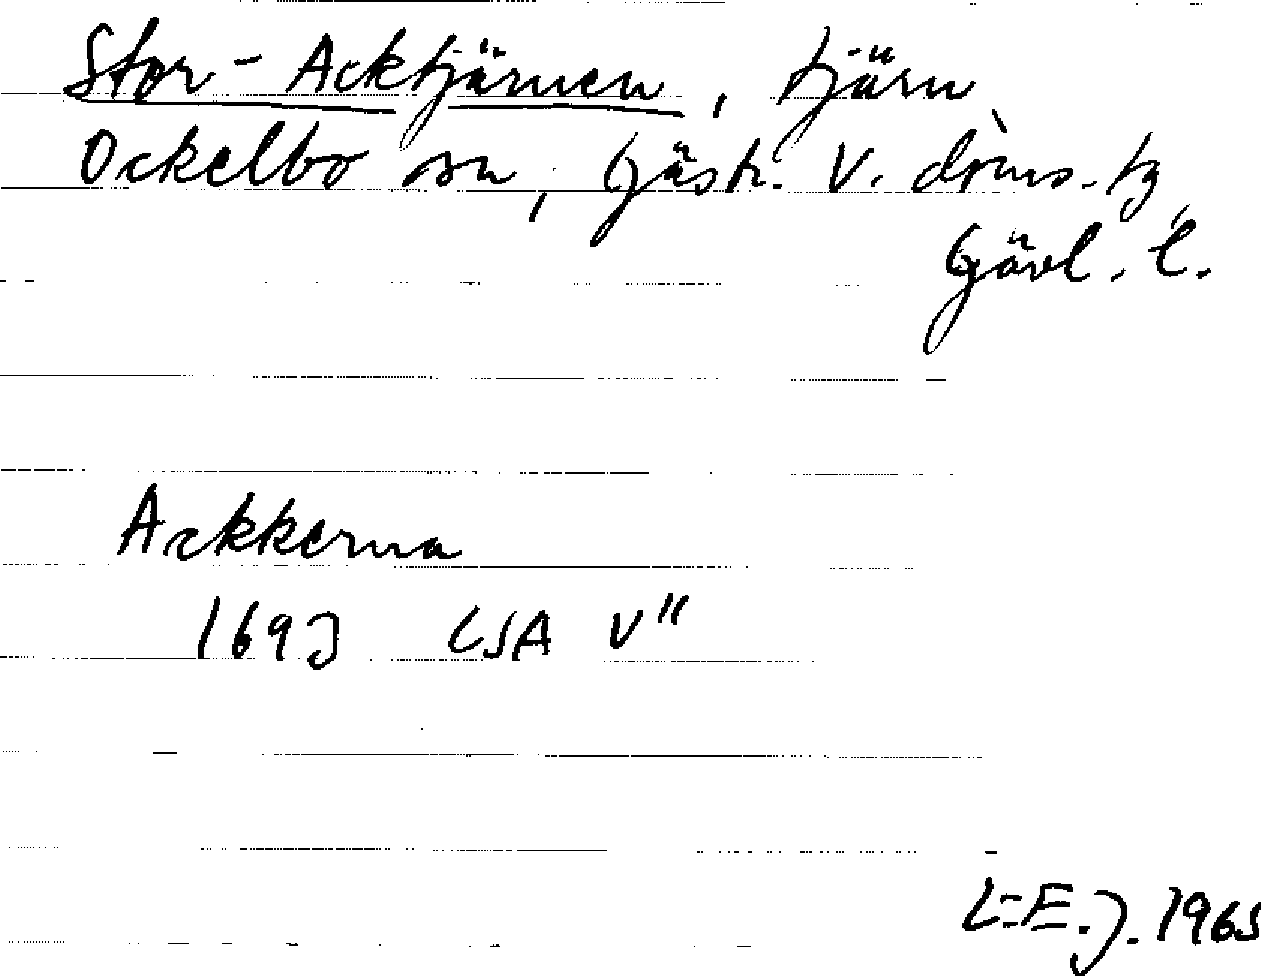 Stor-Acktjärnen, tjärn
Ockelbo sn, Gästr. V. doms.tg
Gävl. l.
Ackkerna
1693 LSA V"
L-E.J. 1965